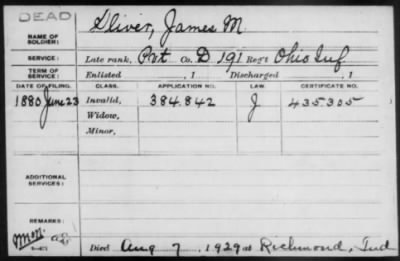 DEAD
NAME OF SOLDIER: Oliver, James M
SERVICE: Late rank, Pvt Co. D 191 Reg't Ohio Inf
TERM OF SERVICE: Enlisted , 1 Discharged , 1
DATE OF FILING. CLASS. APPLICATION NO. LAW. CERTIFICATE NO.
1880 June 23 Invalid, 384.842 J 435305
Widow,
Minor,
ADDITIONAL SERVICES:
REMARKS:
Died Aug 7, 1929 at Richmond, Ind